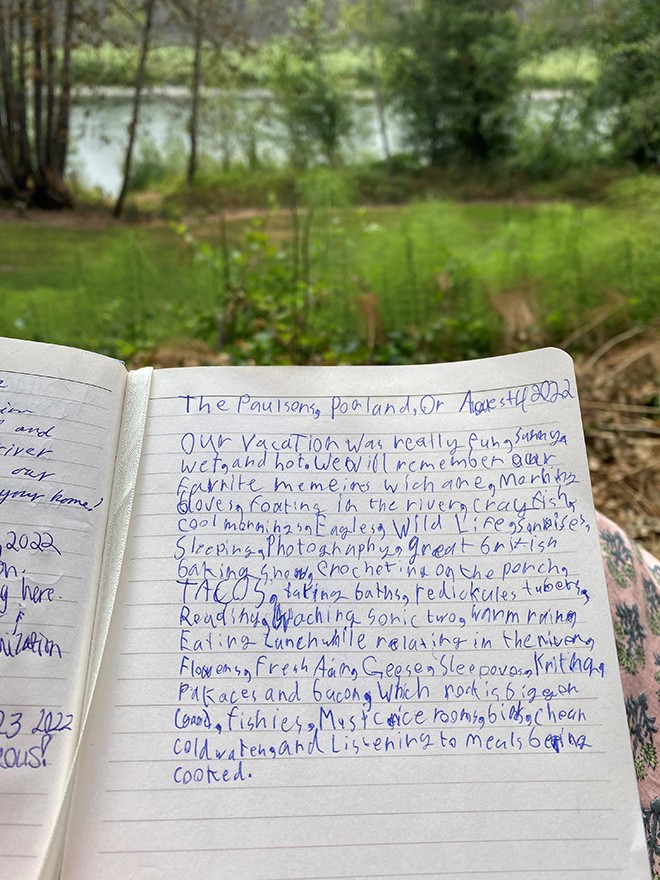 ion
s and
river
our
your home!
2022
on.
g here.
&
nization
23 2022
rous!
The Paulsons, Porland, Or Aguest 4 2022
Our vacation was really fun, sunny,
wet, and hot. We will remember our
favrite memeires wich are, Morning
doves, Foating in the river, crayfish,
cool mornings, Eagles, Wild Life, sunrises,
Sleeping, Photography, great british
baking show, crocheting on the porch,
TACOS, taking baths, redickules tubers,
Reading, Waching Sonic two, warm rain,
Eating Lunch while relaxing in the river,
Flowers, Fresh Air, Geese, Sleepovers, Kniting,
Pakaces and bacon, Which rock is bigger
fishies, rooms, big, clean
cold water, and Listening to meals being
cooked.